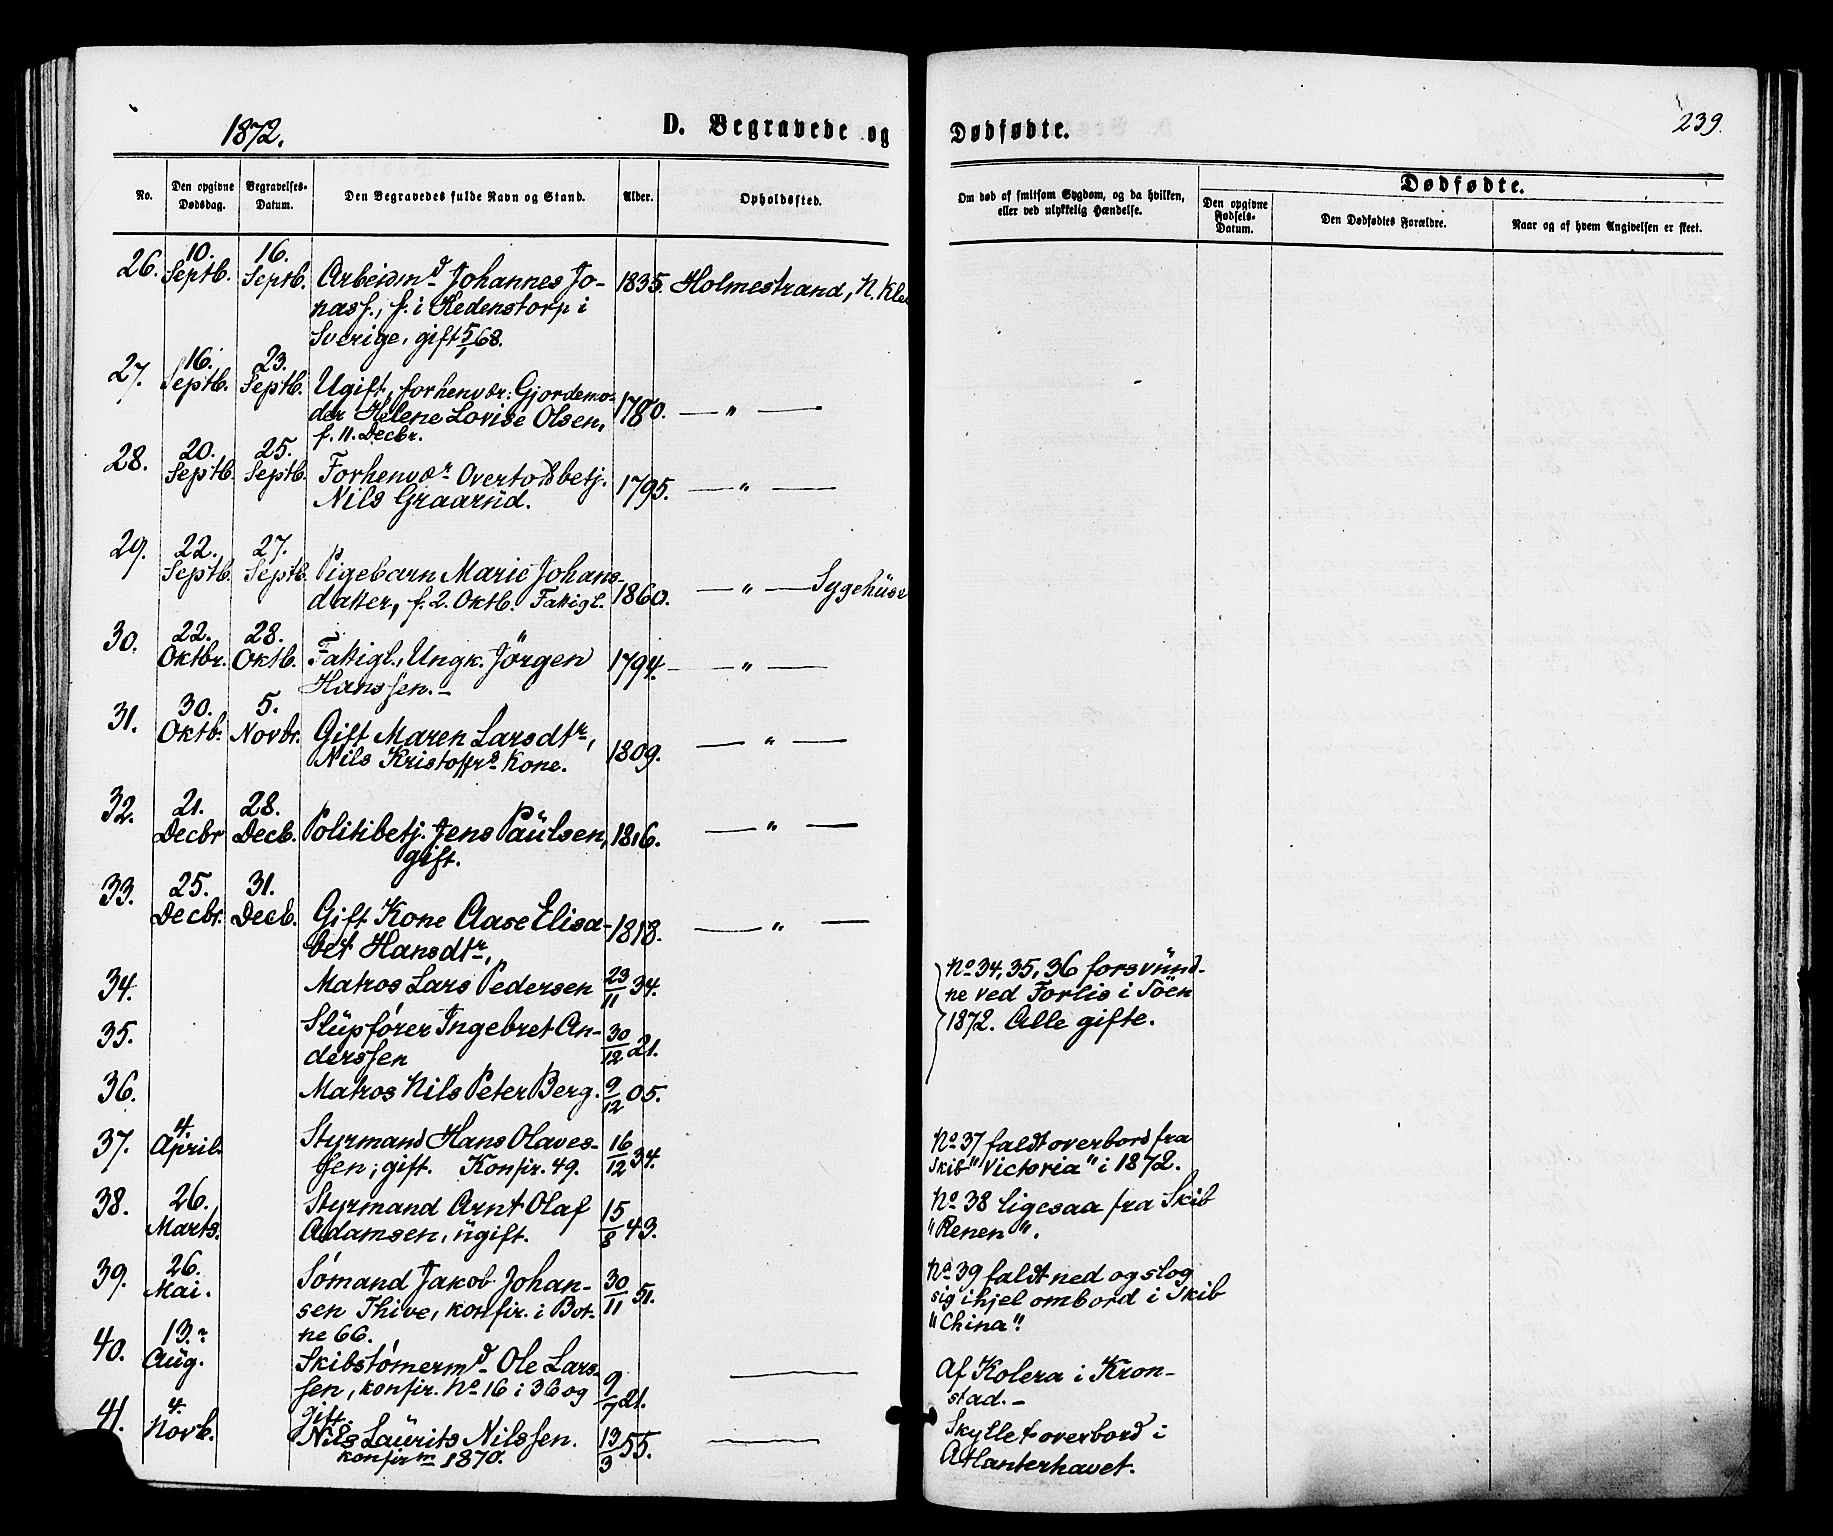 1872.
D. Begravede og Dødfødte.
239.
No.
Den opgivne Dødsdag.
Begravelses-Datum.
Den Begravedes fulde Navn og Stand.
Alder.
Opholdssted.
Om død af smitsom Sygdom, og da hvilken,
eller ved ulykkelig Hændelse.
Dødfødte.
Den opgivne Fødsels-Datum.
Den Dødfødtes Forældre.
Naar og af hvem Angivelsen er skeet.
26. 10. Septb. 16. Septb. Arbeidmd. Johannes Jo- 1835. Holmestrand, N. Kle
nass., f. i Redenstorp i
Sverige, gift 5/1 68.
27. 16. Septb. 23. Septb. Ugift, forhenvær: Gjordemo- 1780. — " —
der Helene Lovise Olsen,
f. 11. Decbr.
28. 20. Septb. 25. Septb. Forhenvær Overtoldbetj. 1795. — " —
Nils Graarud.
29. 22. Septb. 27. Septb. Pigebarn Marie Johans- 1860. — " — Sygehuse
datter, f. 2. Oktb. Fattigl.
30. 22. Oktbr. 28. Oktb. Fattigl., Ungk. Jörgen 1794. — " —
Hanssen. —
31. 30. Oktb. 5. Novbr. Gift Maren Larsdtr, 1809. — " —
Nils Kristoffrs Kone.
32. 21. Decbr 28. Decb. Politibetj. Jens Paulsen, 1816. — " —
gift.
33. 25. Decbr. 31. Decb. Gift Kone Aase Elisa- 1818. — " —
bet Hansdtr,
34. Matros Lars Pedersen 23/11 34. No 34, 35, 36 forsvund-
ne ved Forlis i Söen
35. Slupfører Ingebret An- 30/12 21. 1872. Alle gifte.
derssen
36. Matros Nils Peter Berg. 9/12 05.
37. 4. April. Styrmand Hans Olaves- 16/12 34. No 37 faldt overbord fra
sen, gift. Konfir. 49. Skib "Victoria" i 1872.
38. 26. Marts. Styrmand Arnt Olaf 15/8 43. No 38 ligesaa fra Skib
Adamsen, ugift. "Renen".
39. 26. Mai. Sømand Jakob Johan- 30/11 51. No 39 faldt ned og slog
sen Thive, konfir. i Bot- sig ihjel ombord i Skib
ne 66. "China".
40. 13. Aug. Skibstømermd. Ole Lars- 9/7 21. — Af Kolera i Kron-
sen, konfir. No 16 i 36 og stad. —
gift.
41. 4. Novb. Nils Laurits Nilssen. 13/3 55. — Skyllet overbord i
konfirm 1870. Atlanterhavet.